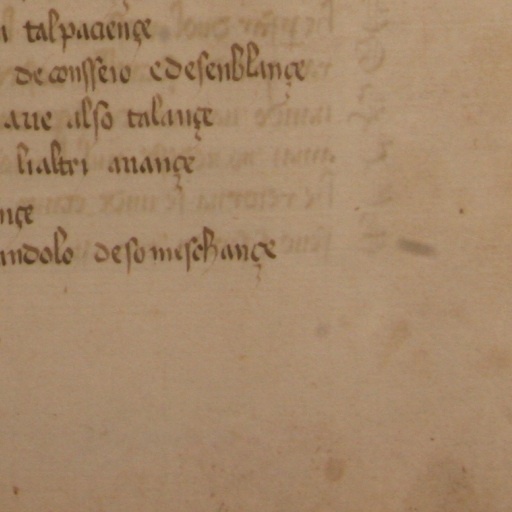 i tal paciençe
de consseio e de senblançe
aue al so talançe
li altri auançe
nçe
andolo de so meschançe